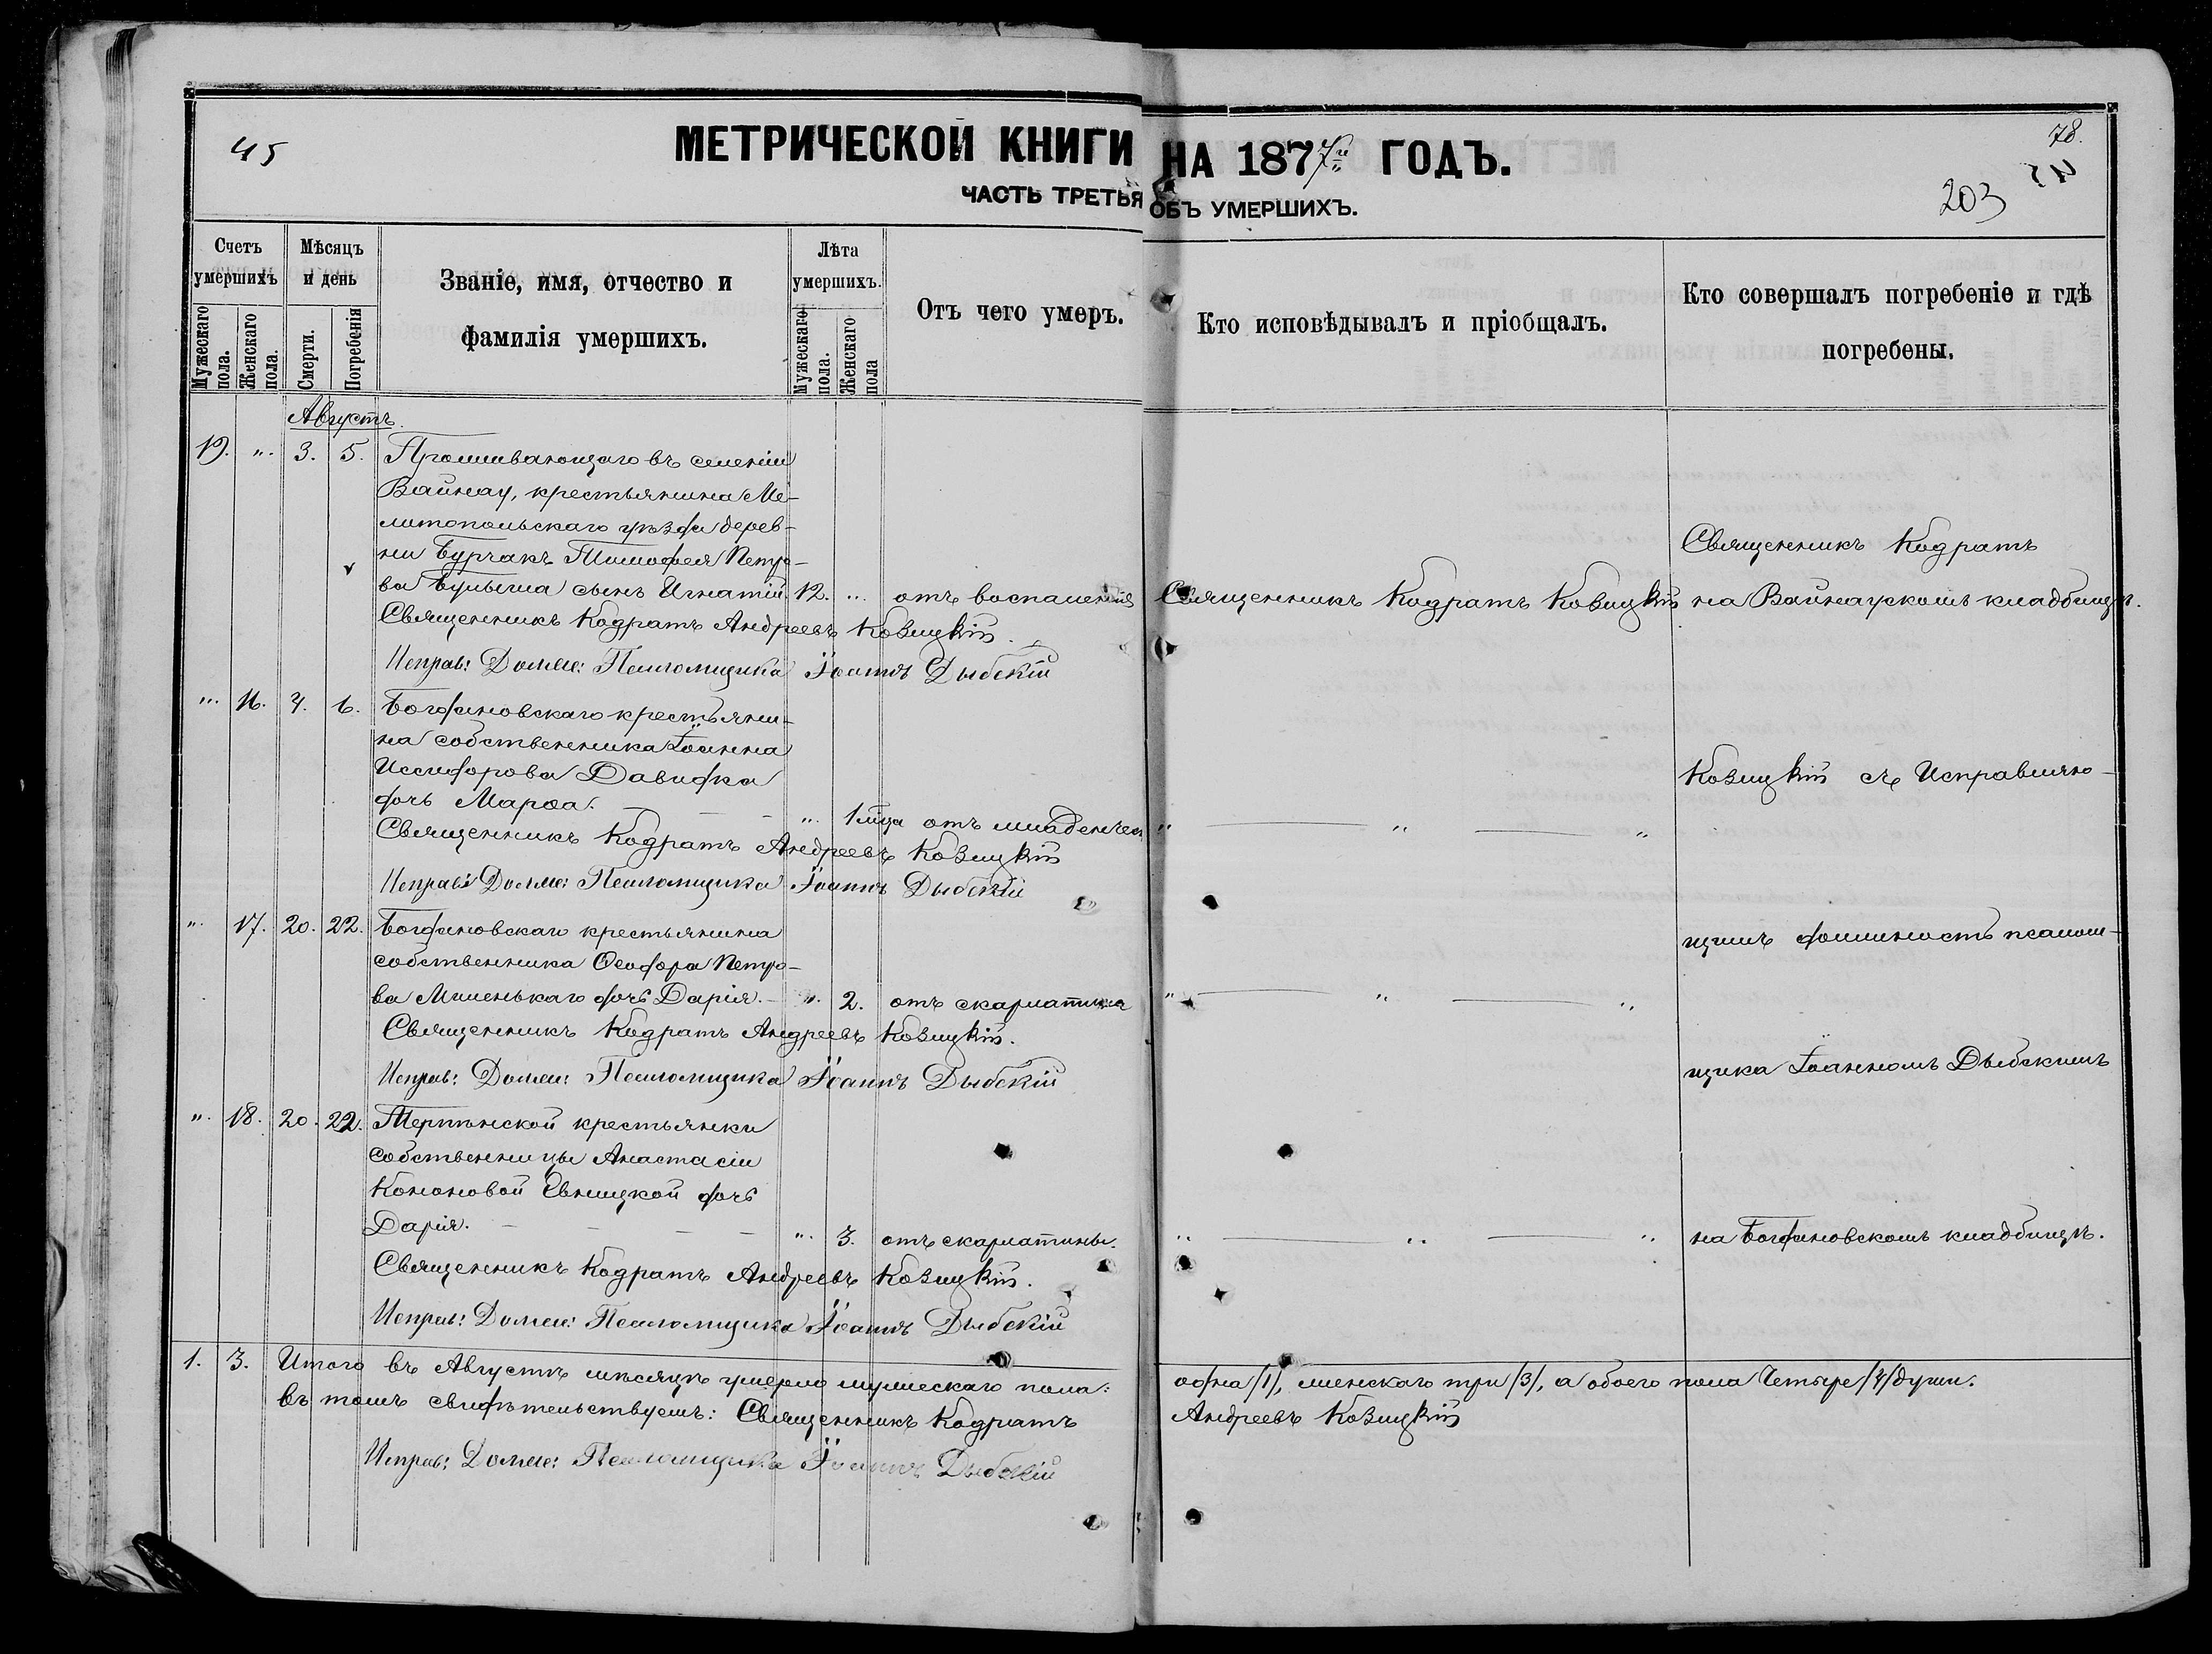 45
МЕТРИЧЕСКОЙ КНИГИ НА 1877й ГОДЪ.
78.
203
ЧАСТЬ ТРЕТЬЯ ОБЪ УМЕРШИХЪ.
Счетъ умершихъ
Мѣсяцъ и день
Званіе, имя, отчество и фамилія умершихъ.
Лѣта умершихъ.
Отъ чего умеръ.
Кто исповѣдывалъ и пріобщалъ.
Кто совершалъ погребеніе и гдѣ погребены.
Мужескаго пола.
Женскаго пола.
Смерти.
Погребенія
Мужескаго пола.
Женскаго пола
Августъ.
19. ". 3. 5. Проживающаго въ селеніи
Вайнау, крестьянина Ме-
литопольскаго уѣзда дерев-
ни Бурчакъ Тимофея Петро-
ва Булыги сынъ Игнатій. 12. ... отъ воспаленія Священникъ Кодратъ Ковицкій
Священникъ Кодратъ
на Вайнаускомъ кладбищѣ.
Священникъ Кодратъ Андреевъ Ковицкій.
Исправ: Должн: Псаломщика Іоаннъ Дыбскій
... 16. 4. 6. Богдановскаго крестьяни-
на собственника Іоанна
Никифорова Давидка
дочь Марѳа. ". 1 мца отъ младенческ " " "
Ковицкій съ Исправляю-
Священникъ Кодратъ Андреевъ Ковицкій
Исправ: Должн: Псаломщика Іоаннъ Дыбскій
". 17. 20. 22. Богдановскаго крестьянина
собственника Ѳеодора Петро-
ва Миленькаго дочь Дарія. ". 2. отъ скарлатины " " "
щимъ должность псалом-
Священникъ Кодратъ Андреевъ Ковицкій.
Исправ: Должн: Псаломщика Іоаннъ Дыбскій
щика Іоанномъ Дыбскимъ
". 18. 20. 22. Терпѣнской крестьянки
собственницы Анастасіи
Кононовой дочь
Дарія. ". 3. отъ скарлатины. " " "
на Богдановскомъ кладбищѣ.
Священникъ Кодратъ Андреевъ Ковицкій.
Исправ: Должн: Псаломщика Іоаннъ Дыбскій
1. 3. Итого въ Августѣ мѣсяцѣ умерло мужескаго пола: одна /1/, женскаго три /3/, а обоего пола Четыре /4/ души.
въ томъ свидѣтельствуемъ: Священникъ Кодратъ Андреевъ Ковицкій
Исправ: Должн: Псаломщика Іоаннъ Дыбскій